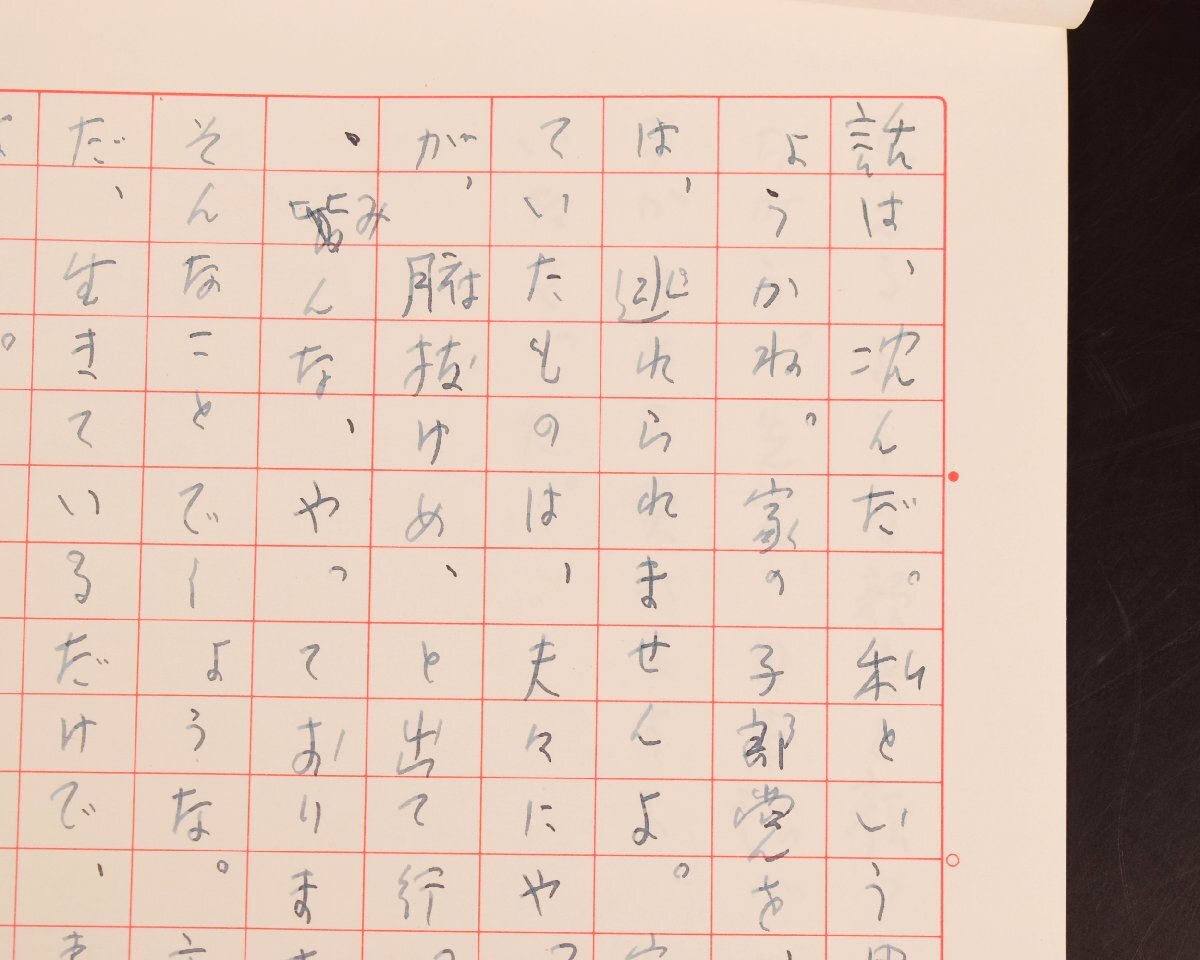 話は、沈んだ。私という
ようかね。家の子郎党を
は、逃れられませんよ。
ていたものは、夫々にや
が、腑抜けめ、と出て行
んな、やっておりま
そんなことでしような。
だ、生きているだけで、